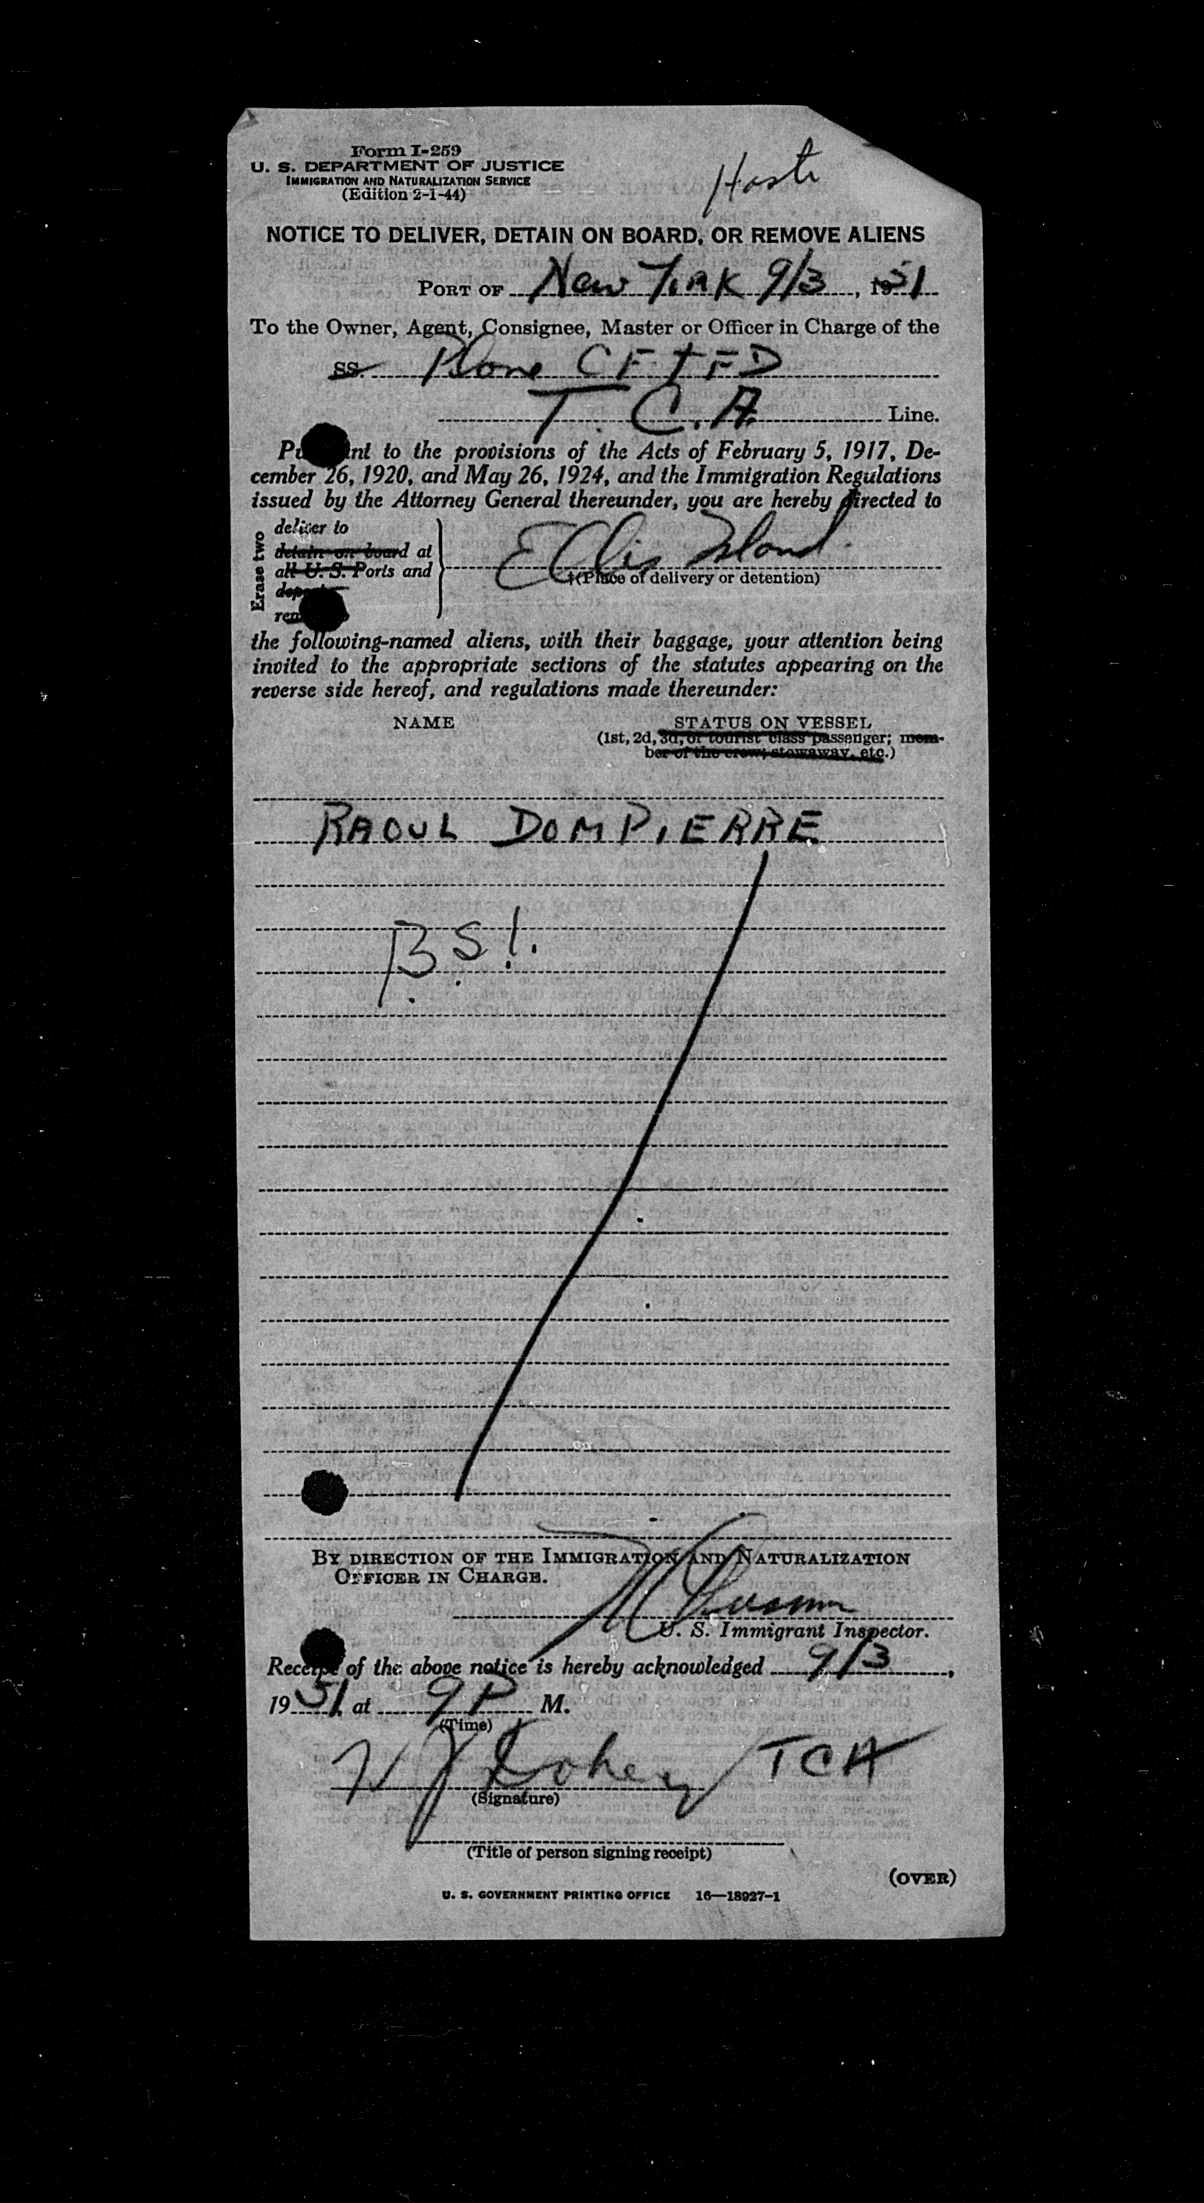 Form I-259
U. S. DEPARTMENT OF JUSTICE
IMMIGRATION AND NATURALIZATION SERVICE
(Edition 2-1-44)
NOTICE TO DELIVER, DETAIN ON BOARD, OR REMOVE ALIENS
PORT OF New York 9/3, 1951
To the Owner, Agent, Consignee, Master or Officer in Charge of the
SS. Plane CF-TFD
T.C.A. Line.
Pursuant to the provisions of the Acts of February 5, 1917, De-
cember 26, 1920, and May 26, 1924, and the Immigration Regulations
issued by the Attorney General thereunder, you are hereby directed to
Erase two
deliver to
detain on board at
all U. S. Ports and
Ellis Island.
(Place of delivery or detention)
the following-named aliens, with their baggage, your attention being
invited to the appropriate sections of the statutes appearing on the
reverse side hereof, and regulations made thereunder:
NAME
STATUS ON VESSEL
(1st, 2d, 3d, or tourist class passenger; mem-
ber of the crew; stowaway, etc.)
RAOUL DOMPIERRE
B.S.I.
BY DIRECTION OF THE IMMIGRATION AND NATURALIZATION
OFFICER IN CHARGE.
U. S. Immigrant Inspector.
Receipt of the above notice is hereby acknowledged 9/3,
1951 at 9 P M.
(Time)
TCA
(Signature)
(Title of person signing receipt)
(OVER)
U. S. GOVERNMENT PRINTING OFFICE 16—18927-1